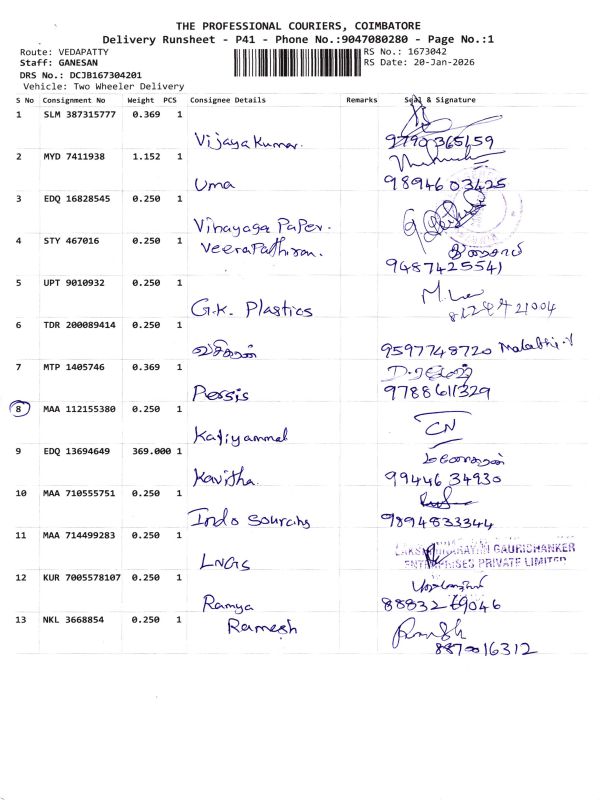 THE PROFESSIONAL COURIERS, COIMBATORE
Delivery Runsheet - P41 - Phone No.:9047080280 - Page No.:1
Route: VEDAPATTY
RS No.: 1673042
Staff: GANESAN
RS Date: 20-Jan-2026
DRS No.: DCJB167304201
Vehicle: Two Wheeler Delivery
S No Consignment No Weight PCS Consignee Details Remarks Seal & Signature
1 SLM 387315777 0.369 1
Vijaya Kumar. 9790365159
2 MYD 7411938 1.152 1
Uma 9894603425
3 EDQ 16828545 0.250 1
Vinayaga PaPer.
4 STY 467016 0.250 1
VeeraPathiran. 9487425541
5 UPT 9010932 0.250 1
G.K. Plastics 8124421004
6 TDR 200089414 0.250 1
9597748720 Malathi.V
7 MTP 1405746 0.369 1
Persis 9788611329
8 MAA 112155380 0.250 1
Kaliyammal CN
9 EDQ 13694649 369.000 1
Kavitha. 99446 34930
10 MAA 710555751 0.250 1
Indo Sourcing 9894833344
11 MAA 714499283 0.250 1
LNGS GAURICHANKER
ENTERPRISES PRIVATE LIMITED
12 KUR 7005578107 0.250 1
Ramya 88832 69046
13 NKL 3668854 0.250 1
Ramesh
8870016312